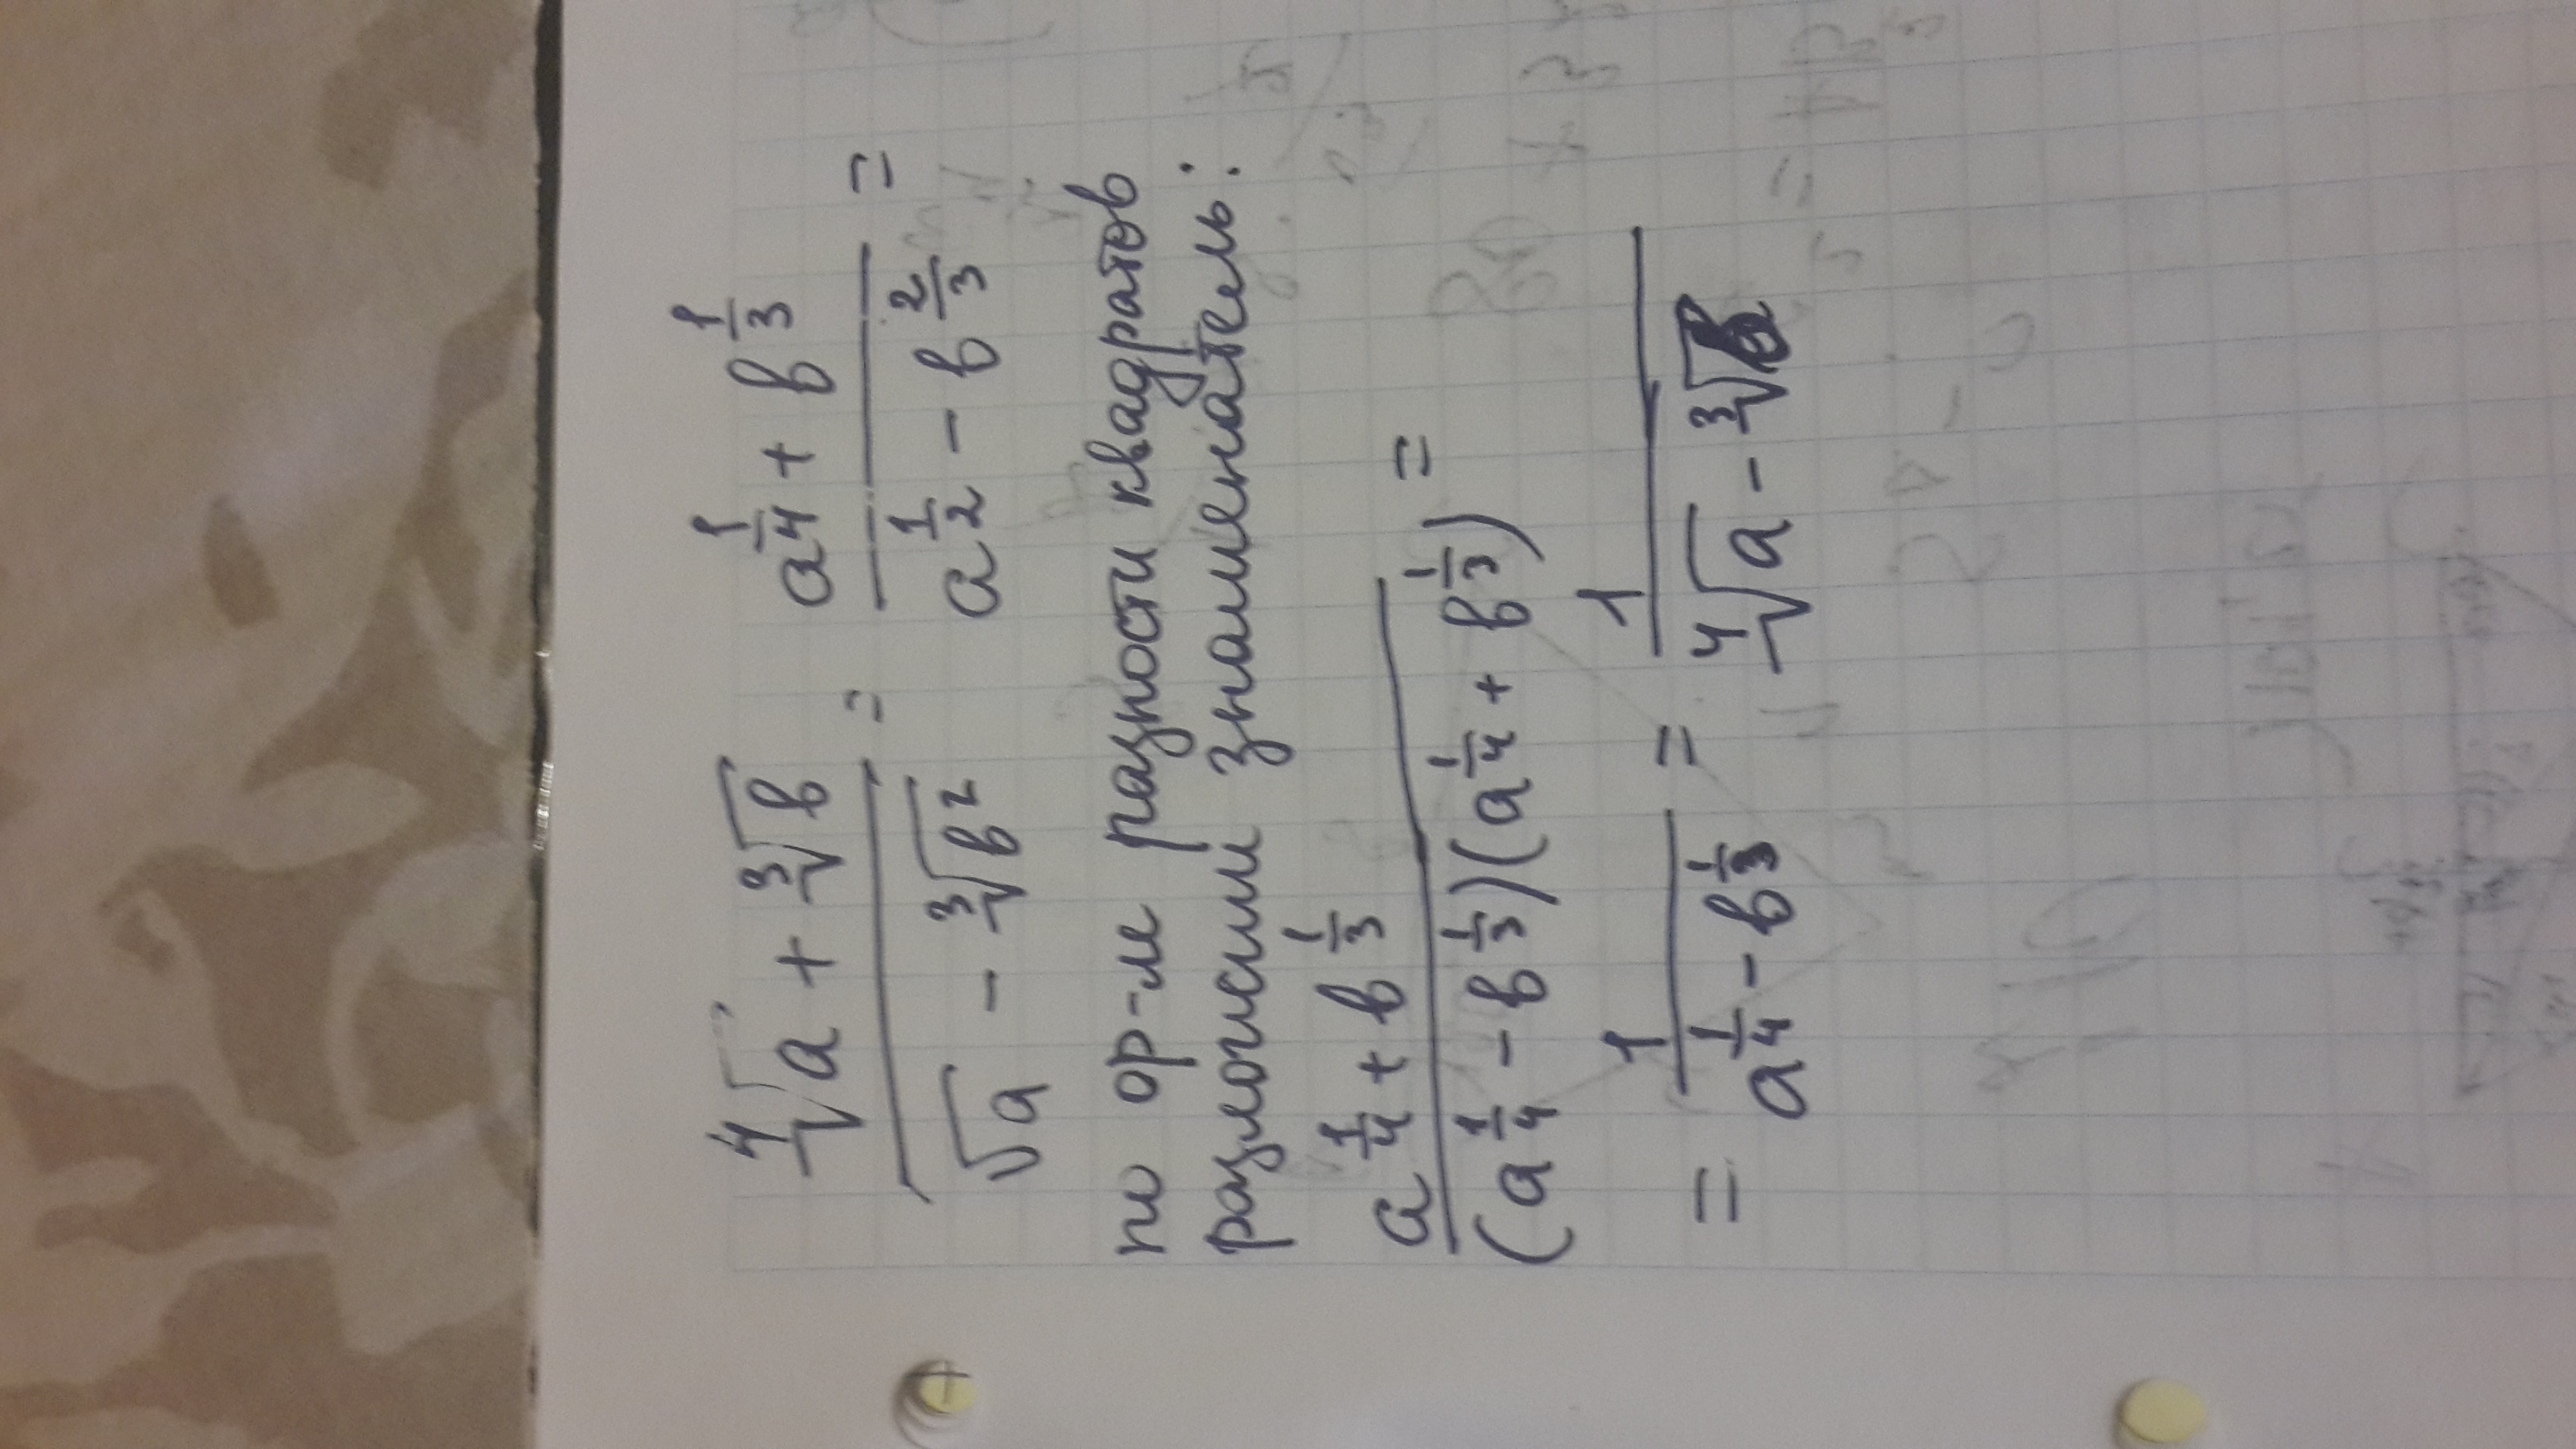 (⁴√a + ³√в)/(√a - ³√в²) = (a^(1/4) + в^(1/3))/(a^(1/2) - в^(2/3)) =
по ф-ле разности квадратов
разложим знаменатель:
(a^(1/4) + в^(1/3))/((a^(1/4) - в^(1/3))(a^(1/4) + в^(1/3))) =
= 1/(a^(1/4) - в^(1/3)) = 1/(⁴√a - ³√в)